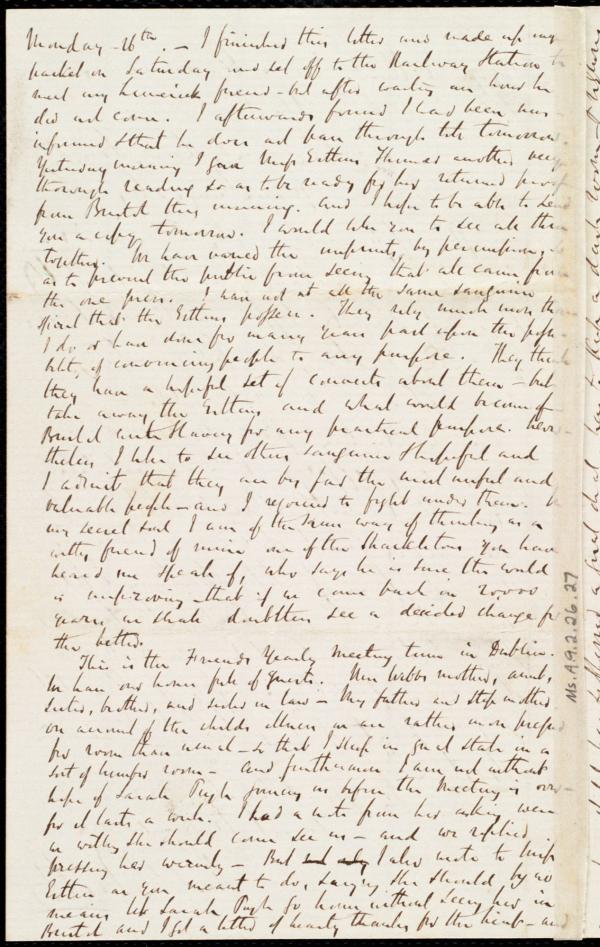 Monday 26th. — I finished this letter and made up my
packet on Saturday and set off to the Railway Station to
meet my Limerick friend — but after waiting an hour he
did not come. I afterwards found I had been mis-
informed & that he does not pass through till tomorrow.
Yesterday morning I gave Miss Estlins Thomas another very
thorough reading so as to be ready for her returned proof
from Bristol this morning. and I hope to be able to send
you a copy tomorrow. I would like you to see all three
together. We have varied the imprints, by permission, so
as to prevent the public from seeing that all came from
the one press. I have not at all the same sanguine
spirit that the Estlins possess. They rely much more than
I do, or have done for many years past upon the possi-
bility of convincing people to any purpose. They think
they have a hopeful set of converts about them — but
take away the Estlins and what would become of
Bristol anti Slavery for any practical purpose. Never-
theless I like to see others sanguine & hopeful and
I admit that they are by far the most useful and
valuable people — and I rejoice to fight under them. In
my secret soul I am of the same way of thinking as a
witty friend of mine one of the Shackletons you have
heard me speak of, who says he is sure the world
is improving — that if we come back in 20,000
years we shall doubtless see a decided change for
the better.
This is the Friends Yearly Meeting time in Dublin.
We have our house full of guests. Wm Webbs mother, aunt,
sister, brother, and sister in law — My father and step mother
on account of the childs illness we are rather more pressed
for room than usual — so that I sleep in great state in a
sort of lumber room — and furthermore I am not without
hope of Sarah Pugh joining us before the Meeting is over —
for it lasts a week. I had a note from her asking were
we willing she should come see us — and we replied
pressing her warmly — But I also wrote to Miss
Estlin as you meant to do, saying she should by no
means let Sarah Pugh go home without seeing her in
Bristol and I got a letter of hearty thanks for the hint — and
Ms. A.9.2.26.27